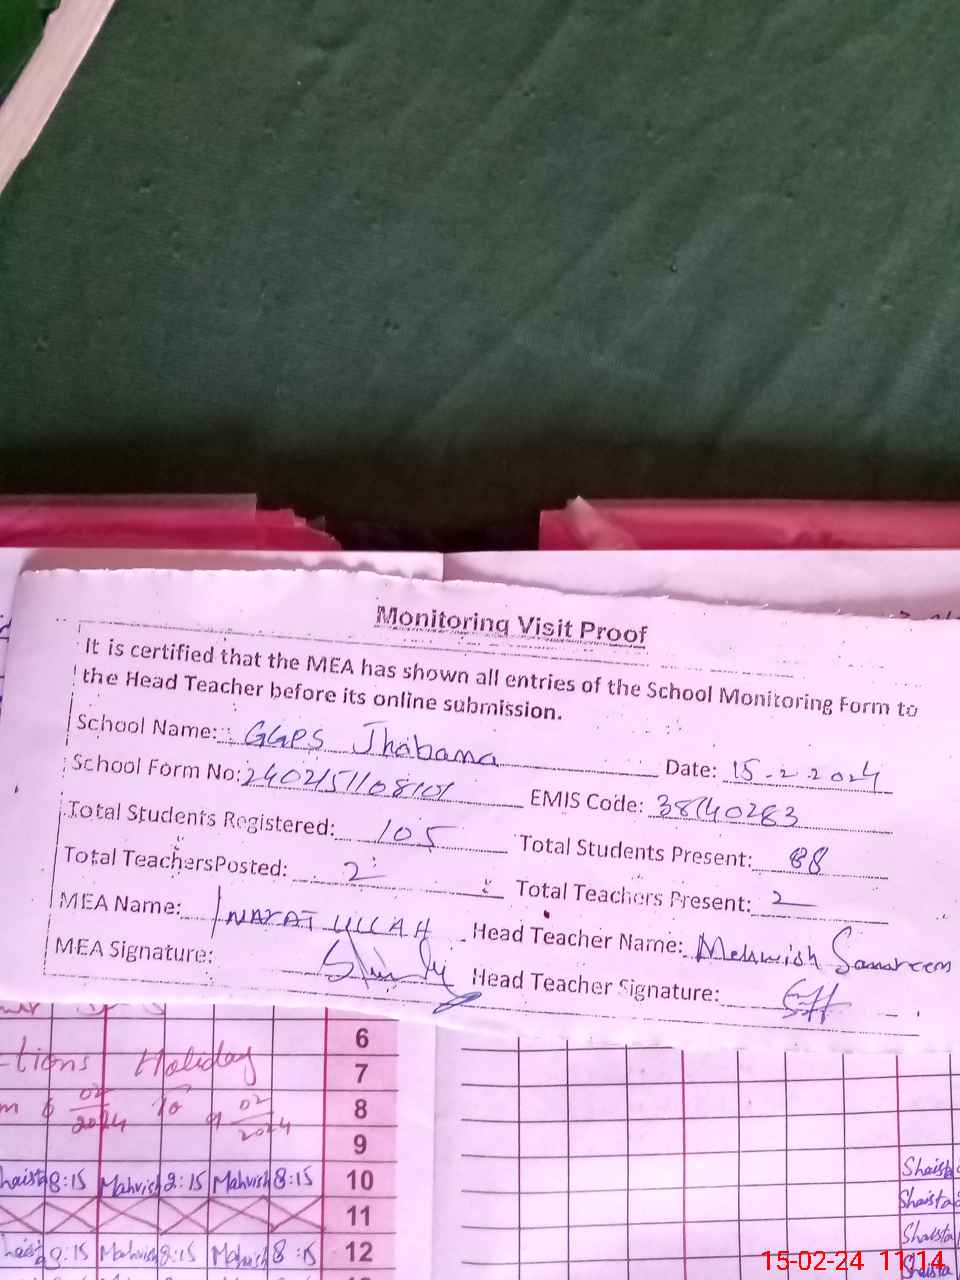 Monitoring Visit Proof
It is certified that the MEA has shown all entries of the School Monitoring Form to
the Head Teacher before its online submission.
School Name: GGPS Jhabana Date: 15-2-2024
School Form No: 2402151108101 EMIS Code: 38140283
Total Students Registered: 105 Total Students Present: 88
Total Teachers Posted: 2 Total Teachers Present: 2
MEA Name: INAYAT ULLAH Head Teacher Name: Mehwish
MEA Signature: Head Teacher Signature:
6
tions Holiday 7
02 2024 To 02 2024 8
9
8:15 Mahvish 8:15 Mahvish 8:15 10 Shaista
11 Shaista
8:15 Mahvish 8:15 Mahvish 8:15 12 Shaista
Shaista
15-02-24 11:14